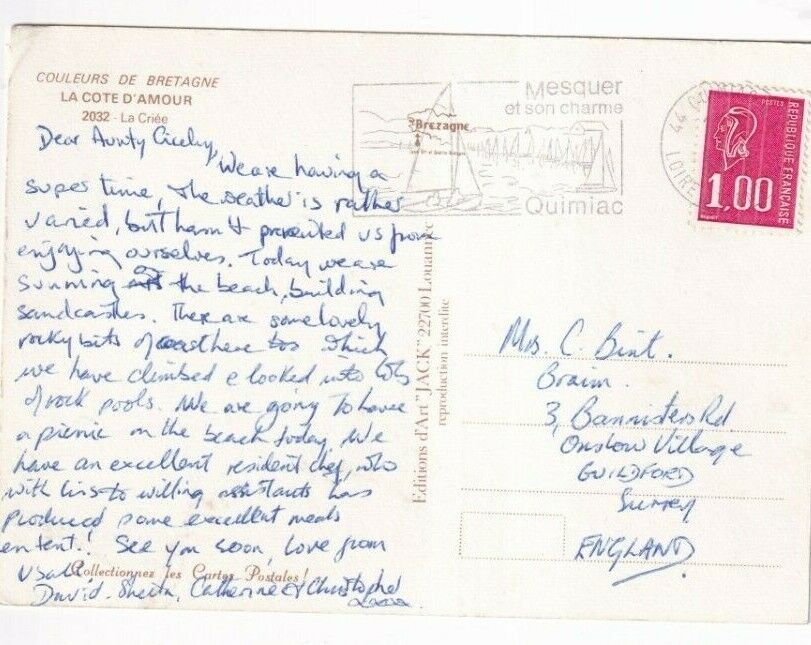 COULEURS DE BRETAGNE
LA COTE D'AMOUR
2032 - La Criée
Dear Aunty Cicely,
We are having a
super time, the weather is rather
varied, but hasn't prevented us from
enjoying ourselves. Today we are
sunning on the beach, building
sandcastles. There are some lovely
rocky bits of coast here too which
we have climbed & looked into lots
of rock pools. We are going to have
a picnic on the beach today. We
have an excellent resident chef, who
with willing assistants has
produced some excellent meals
en tent!! See you soon, love from
us all
David, Sheila, Catherine & Christopher
Collectionnez les Cartes Postales!
Editions d'Art "JACK" 22700 Louannec
reproduction interdite
Mesquer
et son charme
Brezagne
Quimiac
44
LOIRE
POSTES
REPUBLIQUE FRANÇAISE
1,00
Mrs. C. Bint.
3, Bannisters Rd
Onslow Village
GUILDFORD
Surrey
ENGLAND